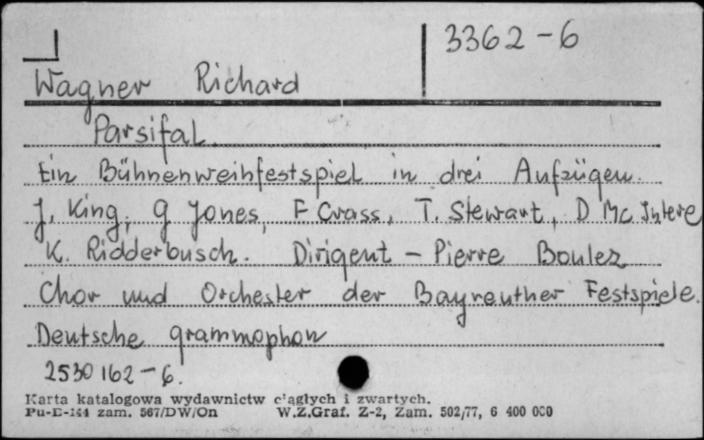 3362-6
Wagner Richard
Parsifal
Ein Bühnenweihfestspiel in drei Aufzügen.
J. King, G Jones, F Crass, T. Stewart, D Mc Intere
K. Ridderbusch. Dirigent - Pierre Boulez
Chor und Orchester der Bayreuther Festspiele.
Deutsche grammophon
2530 162-6.
Karta katalogowa wydawnictw ciągłych i zwartych.
Pu-E-144 zam. 567/DW/On W.Z.Graf. Z-2, Zam. 502/77, 6 400 000